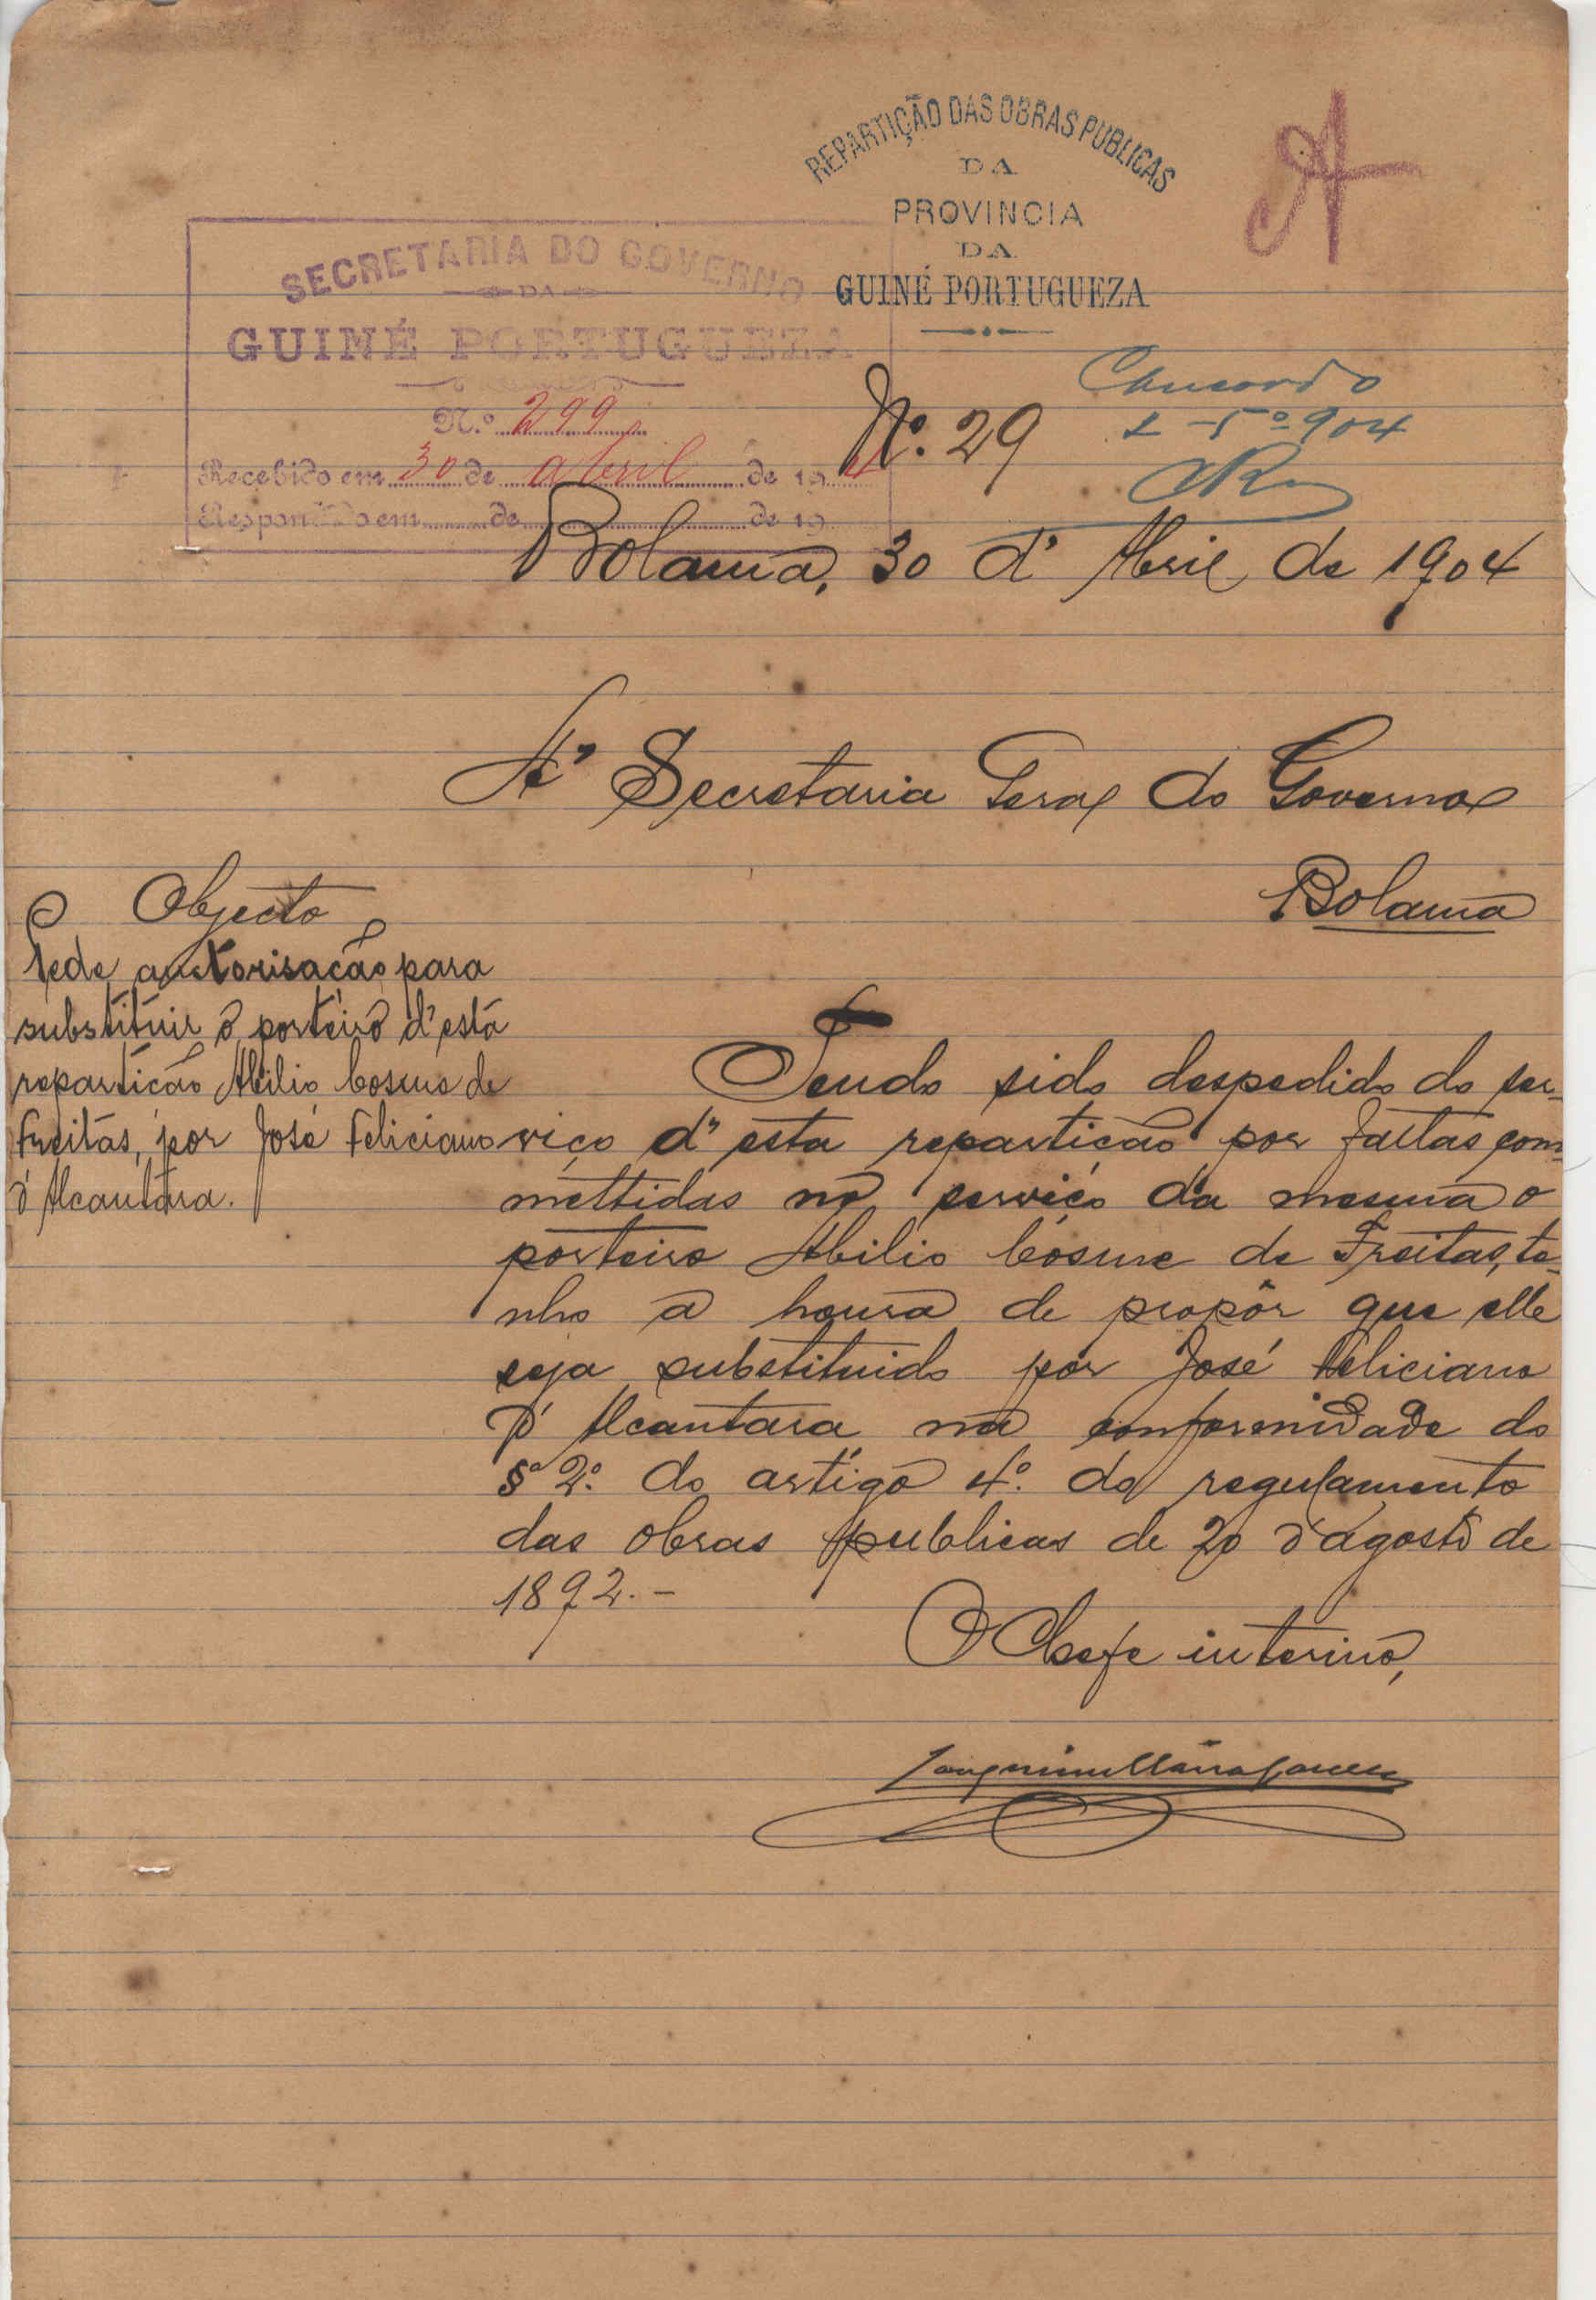 REPARTIÇÃO DAS OBRAS PUBLICAS
DA
PROVINCIA
DA
GUINÉ PORTUGUEZA
SECRETARIA DO GOVERNO
DA
GUINÉ PORTUGUEZA
N.º 299
Recebido em 30 de abril de 1904
Respondido em de de 19
Nº. 29
Concordo
2-5º-904
Bolama, 30 d'Abril de 1904
A' Secretaria Geral do Governo
Bolama
Objecto
Pede auctorisação para
substituir o porteiro d'esta
repartição Abilio Cosme de
Freitas, por José Feliciano
d'Alcantara.
Tendo sido despedido do ser-
viço d'esta repartição por faltas com-
mettidas no serviço da mesma o
porteiro Abilio Cósme de Freitas, te-
nho a honra de propôr que elle
seja substituido por José Feliciano
d'Alcantara na conformidade do
§º 2º. do artigo 4º. do regulamento
das obras publicas de 20 d'agosto de
1892.-
O Chefe interino,